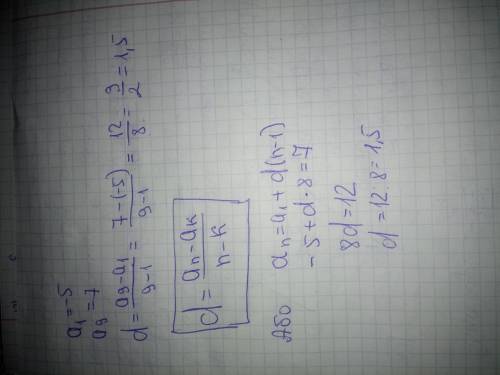 a₁=-5
a₉=7
d = (a₉-a₁)/(9-1) = (7-(-5))/(9-1) = 12/8 = 3/2 = 1,5
d = (aₙ-aₖ)/(n-k)
Або aₙ=a₁+d(n-1)
-5+d·8=7
8d=12
d=12:8=1,5